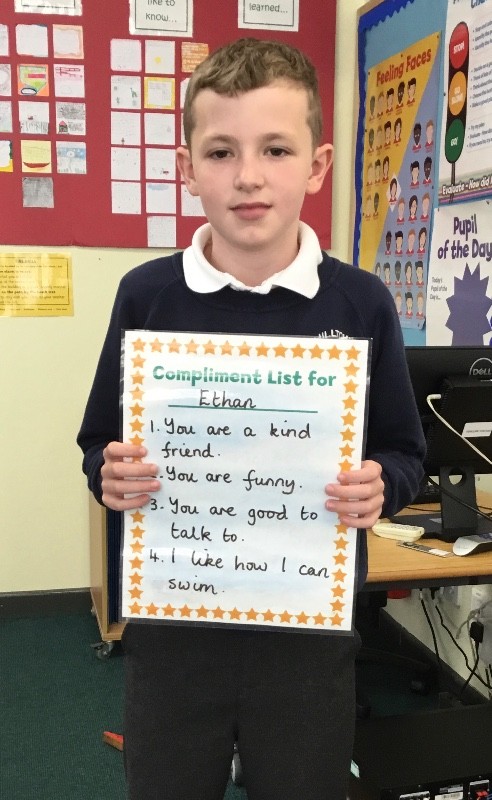 like to
know...
learned...
Feeling Faces
STOP
Evaluate
Pupil
of the Day
Today's
Pupil of the Day is
DELL
Compliment List for
Ethan
1. You are a kind
friend.
2. You are funny.
3. You are good to
talk to.
4. I like how I can
swim.